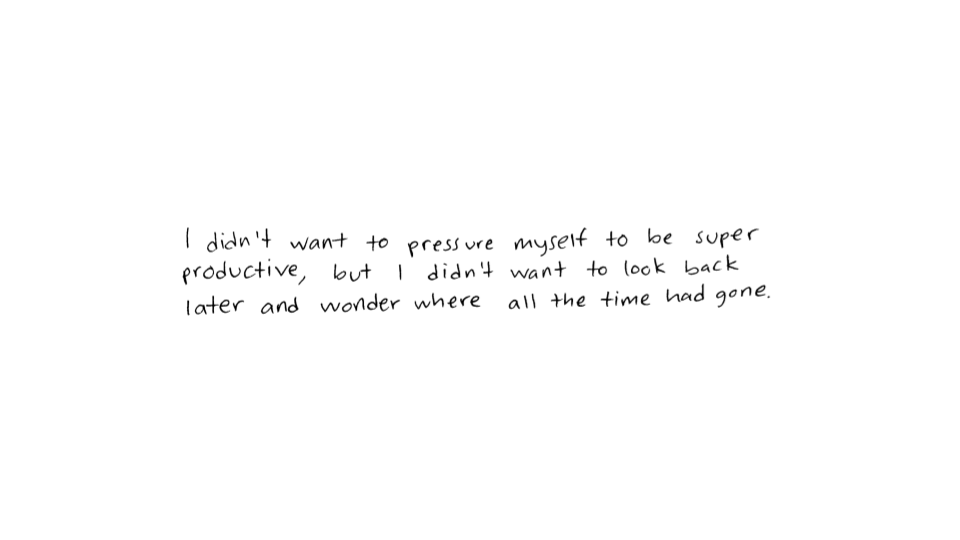 I didn't want to pressure myself to be super
productive, but I didn't want to look back
later and wonder where all the time had gone.